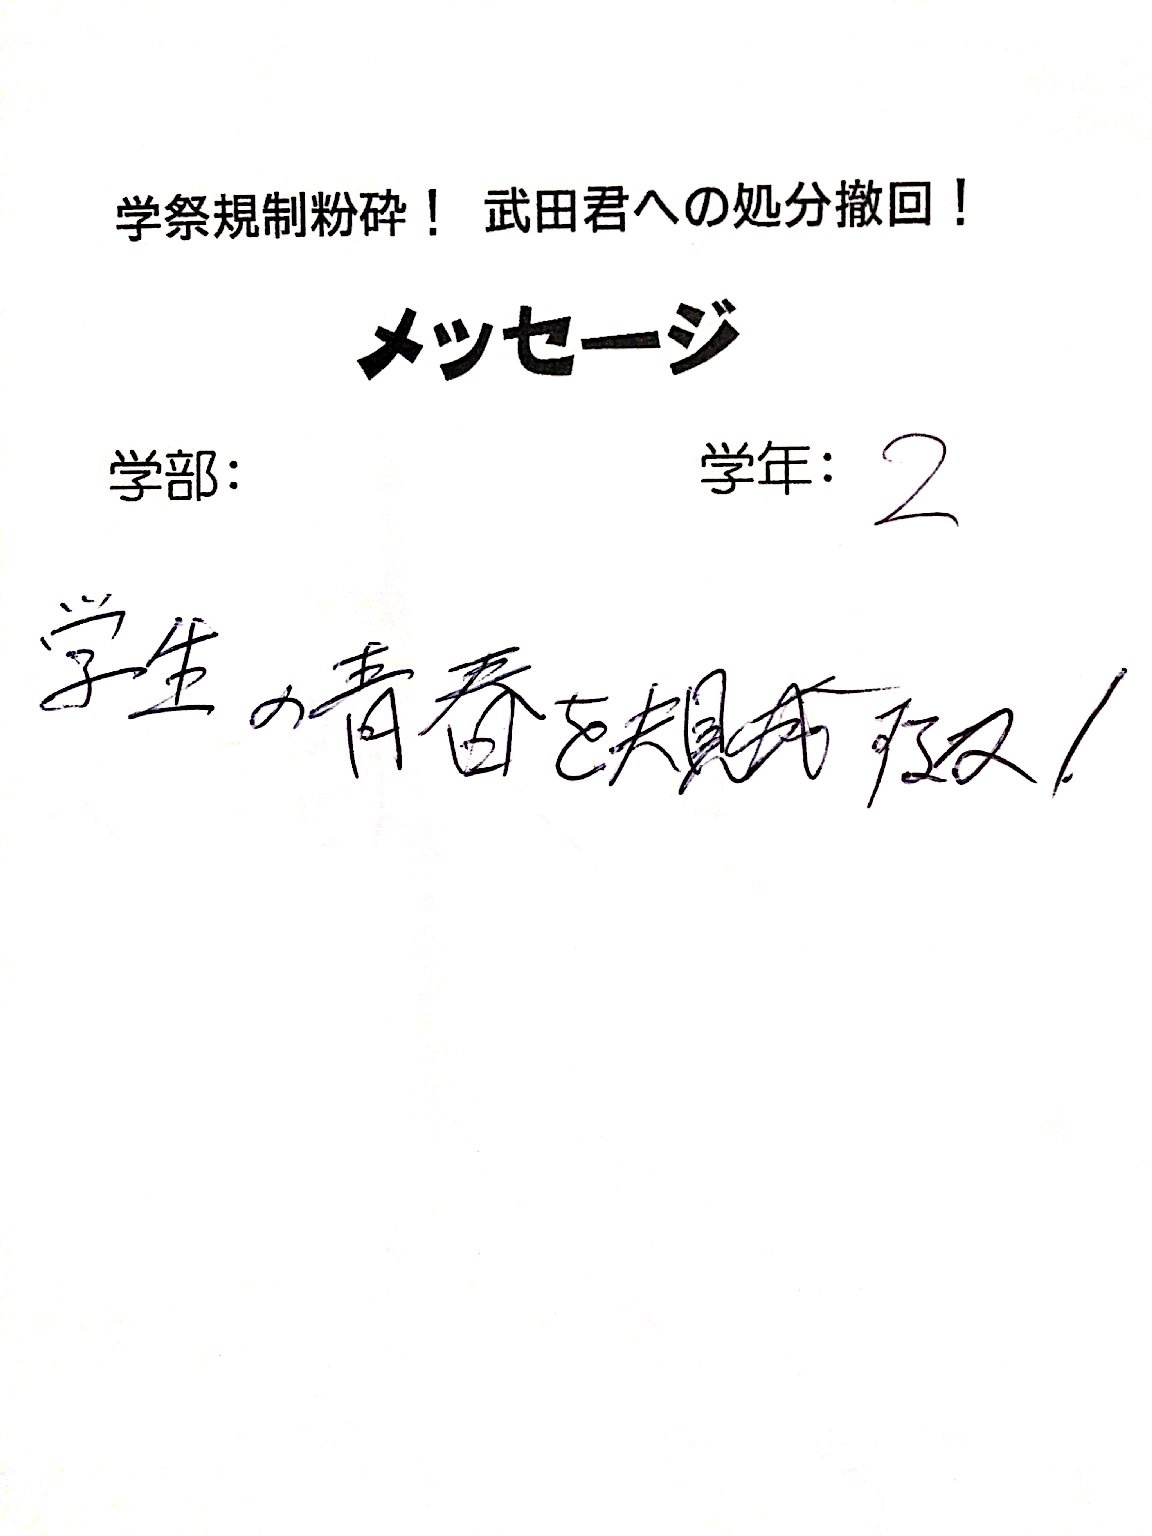 学祭規制粉砕！ 武田君への処分撤回！
メッセージ
学部： 学年：2
学生の青春を規制するな！